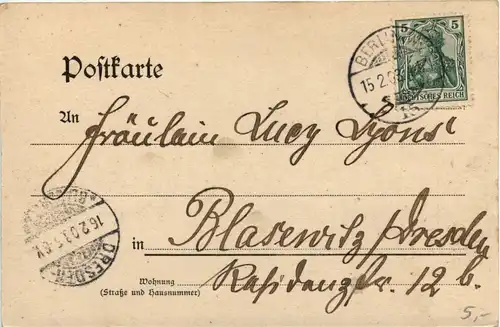 5
5
DEUTSCHES REICH
BERLIN
15.2.03
Postkarte
An Fräulein Lucy Lyons
16.2.03
DRESDEN
in Blasewitz/Dresden
Wohnung
(Straße und Hausnummer)
12 b.
5,-